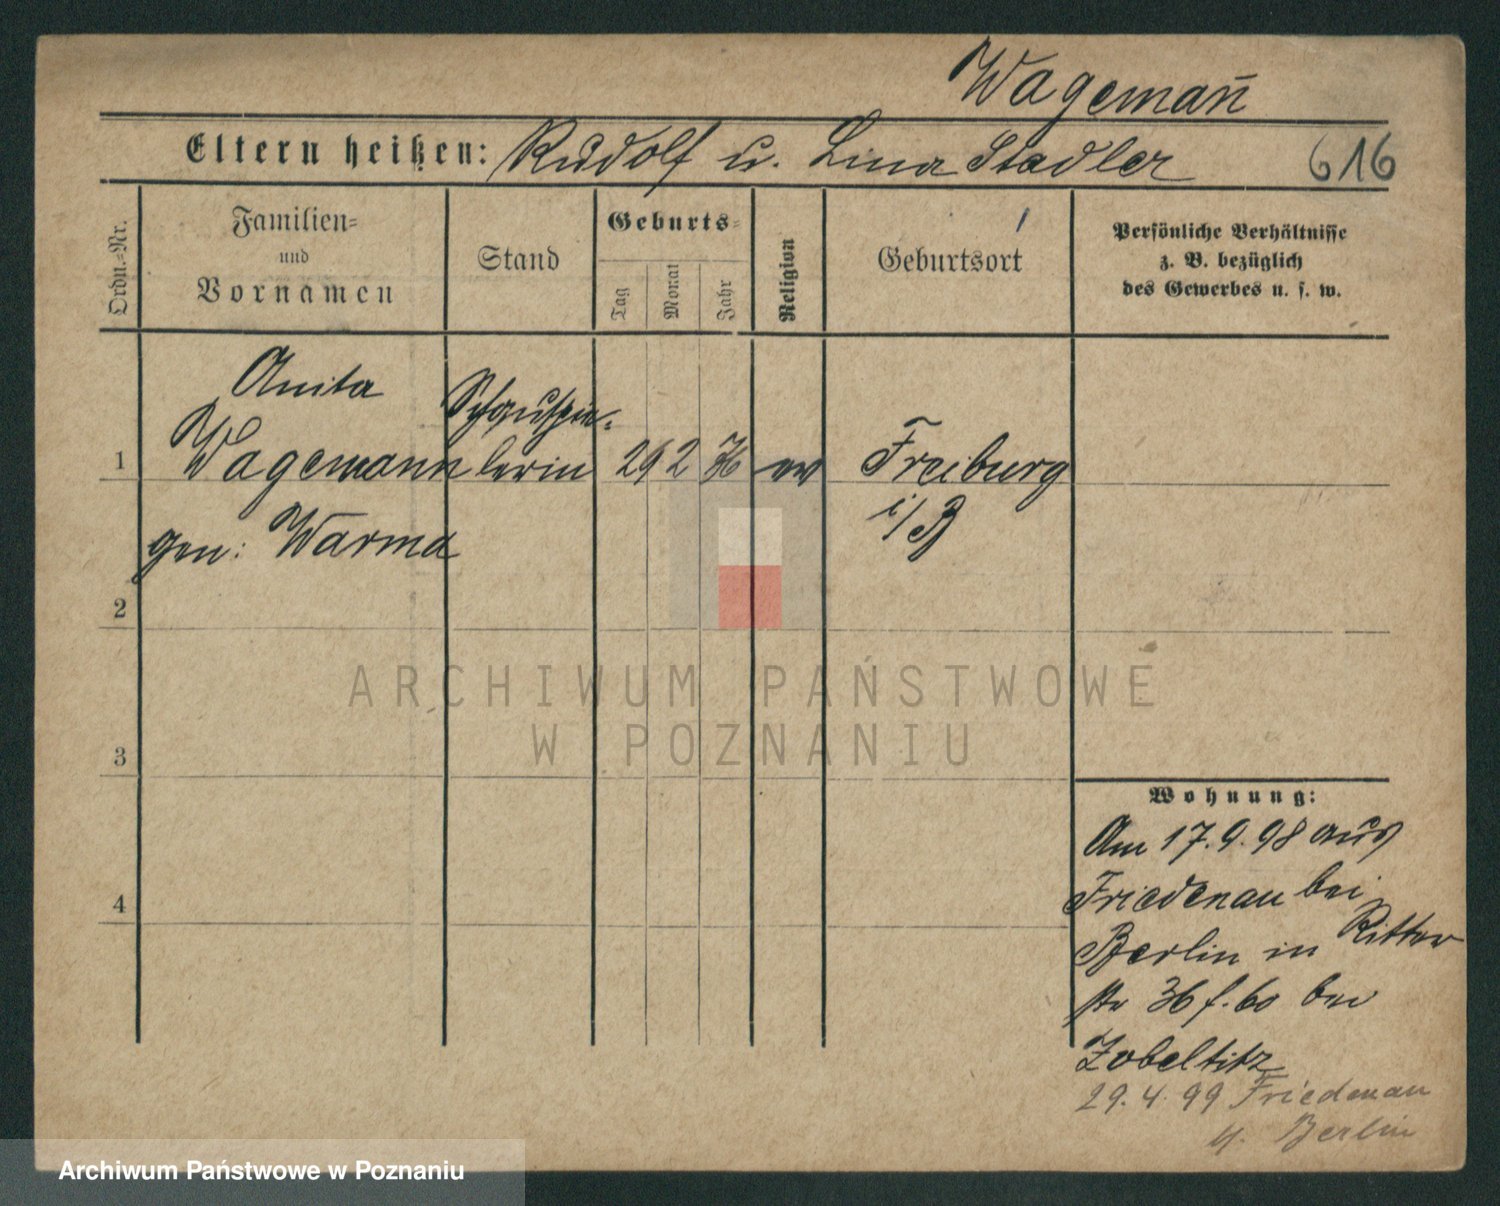 Wagemañ
Eltern heißen: Rudolf u. Lina Stadler 616
Ordn.-Nr.
Familien-
und
Vornamen
Stand
Geburts-
Tag
Monat
Jahr
Religion
Geburtsort
Persönliche Verhältnisse
z. B. bezüglich
des Gewerbes u. s. w.
Anita Schauspie-
1 Wagemann lerin 26 2 76 ev Freiburg
i/B
gen: Warma
2
ARCHIWUM PAŃSTWOWE
W POZNANIU
3
Wohnung:
Am 17.9.98 aus
Friedenau bei
4
Berlin in Ritter
str 36 f. 60 bei
Zobeltitz
29.4.99 Friedenau
Berlin
Archiwum Państwowe w Poznaniu